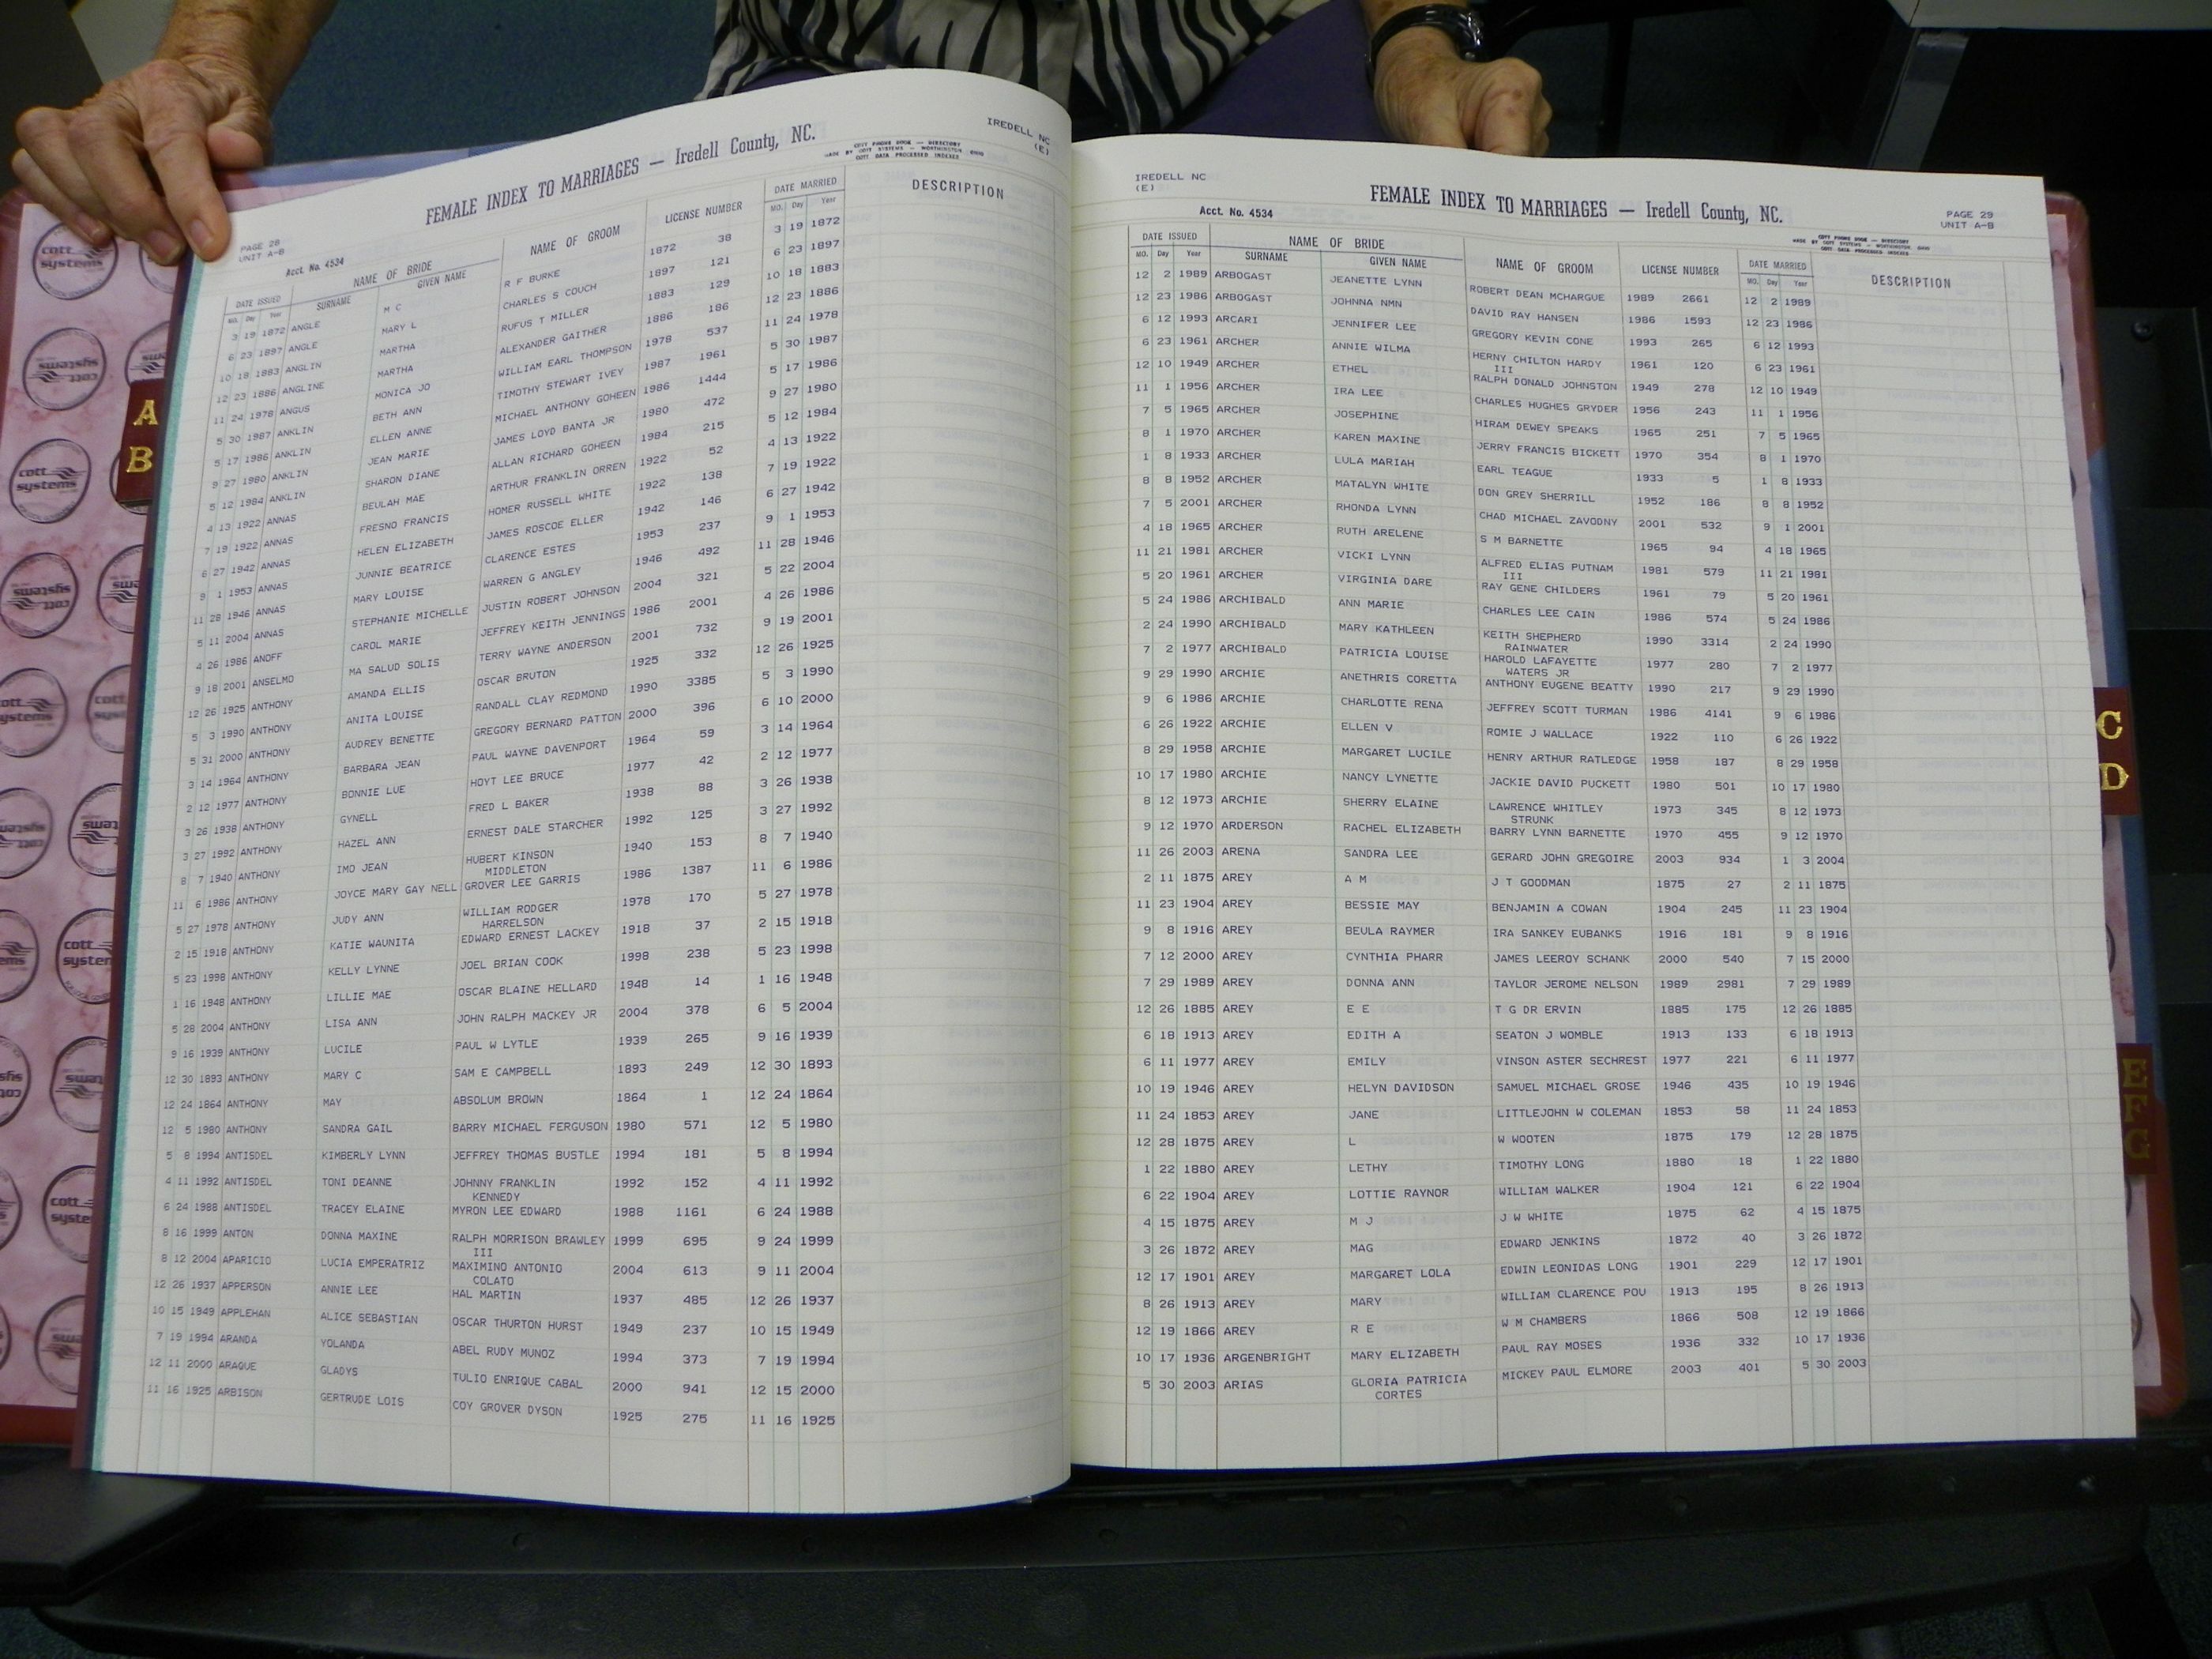 IREDELL NC
(E)
FEMALE INDEX TO MARRIAGES — Iredell County, NC.
COTT FINDER BOOK — DIRECTORY
MADE BY COTT SYSTEMS — WORTHINGTON, OHIO
COTT DATA PROCESSED INDEXES
PAGE 28
UNIT A-B
Acct. No. 4534
DATE ISSUED NAME OF BRIDE NAME OF GROOM LICENSE NUMBER DATE MARRIED DESCRIPTION
MO. Day Year SURNAME GIVEN NAME MO. Day Year
3 19 1872 ANGLE M C R F BURKE 1872 38 3 19 1872
6 23 1897 ANGLE MARY L CHARLES S COUCH 1897 121 6 23 1897
10 18 1883 ANGLIN MARTHA RUFUS T MILLER 1883 129 10 18 1883
12 23 1886 ANGLINE MARTHA ALEXANDER GAITHER 1886 186 12 23 1886
11 24 1978 ANGUS MONICA JO WILLIAM EARL THOMPSON 1978 537 11 24 1978
5 30 1987 ANKLIN BETH ANN TIMOTHY STEWART IVEY 1987 1961 5 30 1987
5 17 1986 ANKLIN ELLEN ANNE MICHAEL ANTHONY GOHEEN 1986 1444 5 17 1986
9 27 1980 ANKLIN JEAN MARIE JAMES LOYD BANTA JR 1980 472 9 27 1980
5 12 1984 ANKLIN SHARON DIANE ALLAN RICHARD GOHEEN 1984 215 5 12 1984
4 13 1922 ANNAS BEULAH MAE ARTHUR FRANKLIN ORREN 1922 52 4 13 1922
7 19 1922 ANNAS FRESNO FRANCIS HOMER RUSSELL WHITE 1922 138 7 19 1922
6 27 1942 ANNAS HELEN ELIZABETH JAMES ROSCOE ELLER 1942 146 6 27 1942
9 1 1953 ANNAS JUNNIE BEATRICE CLARENCE ESTES 1953 237 9 1 1953
11 28 1946 ANNAS MARY LOUISE WARREN G ANGLEY 1946 492 11 28 1946
5 11 2004 ANNAS STEPHANIE MICHELLE JUSTIN ROBERT JOHNSON 2004 321 5 22 2004
4 26 1986 ANOFF CAROL MARIE JEFFREY KEITH JENNINGS 1986 2001 4 26 1986
9 18 2001 ANSELMO MA SALUD SOLIS TERRY WAYNE ANDERSON 2001 732 9 19 2001
12 26 1925 ANTHONY AMANDA ELLIS OSCAR BRUTON 1925 332 12 26 1925
5 3 1990 ANTHONY ANITA LOUISE RANDALL CLAY REDMOND 1990 3385 5 3 1990
5 31 2000 ANTHONY AUDREY BENETTE GREGORY BERNARD PATTON 2000 396 6 10 2000
3 14 1964 ANTHONY BARBARA JEAN PAUL WAYNE DAVENPORT 1964 59 3 14 1964
2 12 1977 ANTHONY BONNIE LUE HOYT LEE BRUCE 1977 42 2 12 1977
3 26 1938 ANTHONY GYNELL FRED L BAKER 1938 88 3 26 1938
3 27 1992 ANTHONY HAZEL ANN ERNEST DALE STARCHER 1992 125 3 27 1992
8 7 1940 ANTHONY IMO JEAN HUBERT KINSON 1940 153 8 7 1940
MIDDLETON
11 6 1986 ANTHONY JOYCE MARY GAY NELL GROVER LEE GARRIS 1986 1387 11 6 1986
5 27 1978 ANTHONY JUDY ANN WILLIAM RODGER 1978 170 5 27 1978
HARRELSON
2 15 1918 ANTHONY KATIE WAUNITA EDWARD ERNEST LACKEY 1918 37 2 15 1918
5 23 1998 ANTHONY KELLY LYNNE JOEL BRIAN COOK 1998 238 5 23 1998
1 16 1948 ANTHONY LILLIE MAE OSCAR BLAINE HELLARD 1948 14 1 16 1948
5 28 2004 ANTHONY LISA ANN JOHN RALPH MACKEY JR 2004 378 6 5 2004
9 16 1939 ANTHONY LUCILE PAUL W LYTLE 1939 265 9 16 1939
12 30 1893 ANTHONY MARY C SAM E CAMPBELL 1893 249 12 30 1893
12 24 1864 ANTHONY MAY ABSOLUM BROWN 1864 1 12 24 1864
12 5 1980 ANTHONY SANDRA GAIL BARRY MICHAEL FERGUSON 1980 571 12 5 1980
5 8 1994 ANTISDEL KIMBERLY LYNN JEFFREY THOMAS BUSTLE 1994 181 5 8 1994
4 11 1992 ANTISDEL TONI DEANNE JOHNNY FRANKLIN 1992 152 4 11 1992
KENNEDY
6 24 1988 ANTISDEL TRACEY ELAINE MYRON LEE EDWARD 1988 1161 6 24 1988
8 16 1999 ANTON DONNA MAXINE RALPH MORRISON BRAWLEY 1999 695 9 24 1999
III
8 12 2004 APARICIO LUCIA EMPERATRIZ MAXIMINO ANTONIO 2004 613 9 11 2004
COLATO
12 26 1937 APPERSON ANNIE LEE HAL MARTIN 1937 485 12 26 1937
10 15 1949 APPLEHAN ALICE SEBASTIAN OSCAR THURTON HURST 1949 237 10 15 1949
7 19 1994 ARANDA YOLANDA ABEL RUDY MUNOZ 1994 373 7 19 1994
12 11 2000 ARAQUE GLADYS TULIO ENRIQUE CABAL 2000 941 12 15 2000
11 16 1925 ARBISON GERTRUDE LOIS COY GROVER DYSON 1925 275 11 16 1925
IREDELL NC
(E)
FEMALE INDEX TO MARRIAGES — Iredell County, NC.
Acct. No. 4534
PAGE 29
UNIT A-B
COTT FINDER BOOK — DIRECTORY
MADE BY COTT SYSTEMS — WORTHINGTON, OHIO
COTT DATA PROCESSED INDEXES
DATE ISSUED NAME OF BRIDE NAME OF GROOM LICENSE NUMBER DATE MARRIED DESCRIPTION
MO. Day Year SURNAME GIVEN NAME MO. Day Year
12 2 1989 ARBOGAST JEANETTE LYNN ROBERT DEAN MCHARGUE 1989 2661 12 2 1989
12 23 1986 ARBOGAST JOHNNA NMN DAVID RAY HANSEN 1986 1593 12 23 1986
6 12 1993 ARCARI JENNIFER LEE GREGORY KEVIN CONE 1993 265 6 12 1993
6 23 1961 ARCHER ANNIE WILMA HERNY CHILTON HARDY 1961 120 6 23 1961
III
12 10 1949 ARCHER ETHEL RALPH DONALD JOHNSTON 1949 278 12 10 1949
11 1 1956 ARCHER IRA LEE CHARLES HUGHES GRYDER 1956 243 11 1 1956
7 5 1965 ARCHER JOSEPHINE HIRAM DEWEY SPEAKS 1965 251 7 5 1965
8 1 1970 ARCHER KAREN MAXINE JERRY FRANCIS BICKETT 1970 354 8 1 1970
1 8 1933 ARCHER LULA MARIAH EARL TEAGUE 1933 5 1 8 1933
8 8 1952 ARCHER MATALYN WHITE DON GREY SHERRILL 1952 186 8 8 1952
7 5 2001 ARCHER RHONDA LYNN CHAD MICHAEL ZAVODNY 2001 532 9 1 2001
4 18 1965 ARCHER RUTH ARELENE S M BARNETTE 1965 94 4 18 1965
11 21 1981 ARCHER VICKI LYNN ALFRED ELIAS PUTNAM 1981 579 11 21 1981
III
5 20 1961 ARCHER VIRGINIA DARE RAY GENE CHILDERS 1961 79 5 20 1961
5 24 1986 ARCHIBALD ANN MARIE CHARLES LEE CAIN 1986 574 5 24 1986
2 24 1990 ARCHIBALD MARY KATHLEEN KEITH SHEPHERD 1990 3314 2 24 1990
RAINWATER
7 2 1977 ARCHIBALD PATRICIA LOUISE HAROLD LAFAYETTE 1977 280 7 2 1977
WATERS JR
9 29 1990 ARCHIE ANETHRIS CORETTA ANTHONY EUGENE BEATTY 1990 217 9 29 1990
9 6 1986 ARCHIE CHARLOTTE RENA JEFFREY SCOTT TURMAN 1986 4141 9 6 1986
6 26 1922 ARCHIE ELLEN V ROMIE J WALLACE 1922 110 6 26 1922
8 29 1958 ARCHIE MARGARET LUCILE HENRY ARTHUR RATLEDGE 1958 187 8 29 1958
10 17 1980 ARCHIE NANCY LYNETTE JACKIE DAVID PUCKETT 1980 501 10 17 1980
8 12 1973 ARCHIE SHERRY ELAINE LAWRENCE WHITLEY 1973 345 8 12 1973
STRUNK
9 12 1970 ARDERSON RACHEL ELIZABETH BARRY LYNN BARNETTE 1970 455 9 12 1970
11 26 2003 ARENA SANDRA LEE GERARD JOHN GREGOIRE 2003 934 1 3 2004
2 11 1875 AREY A M J T GOODMAN 1875 27 2 11 1875
11 23 1904 AREY BESSIE MAY BENJAMIN A COWAN 1904 245 11 23 1904
9 8 1916 AREY BEULA RAYMER IRA SANKEY EUBANKS 1916 181 9 8 1916
7 12 2000 AREY CYNTHIA PHARR JAMES LEEROY SCHANK 2000 540 7 15 2000
7 29 1989 AREY DONNA ANN TAYLOR JEROME NELSON 1989 2981 7 29 1989
12 26 1885 AREY E E T G DR ERVIN 1885 175 12 26 1885
6 18 1913 AREY EDITH A SEATON J WOMBLE 1913 133 6 18 1913
6 11 1977 AREY EMILY VINSON ASTER SECHREST 1977 221 6 11 1977
10 19 1946 AREY HELYN DAVIDSON SAMUEL MICHAEL GROSE 1946 435 10 19 1946
11 24 1853 AREY JANE LITTLEJOHN W COLEMAN 1853 58 11 24 1853
12 28 1875 AREY L W WOOTEN 1875 179 12 28 1875
1 22 1880 AREY LETHY TIMOTHY LONG 1880 18 1 22 1880
6 22 1904 AREY LOTTIE RAYNOR WILLIAM WALKER 1904 121 6 22 1904
4 15 1875 AREY M J J W WHITE 1875 62 4 15 1875
3 26 1872 AREY MAG EDWARD JENKINS 1872 40 3 26 1872
12 17 1901 AREY MARGARET LOLA EDWIN LEONIDAS LONG 1901 229 12 17 1901
8 26 1913 AREY MARY WILLIAM CLARENCE POU 1913 195 8 26 1913
12 19 1866 AREY R E W M CHAMBERS 1866 508 12 19 1866
10 17 1936 ARGENBRIGHT MARY ELIZABETH PAUL RAY MOSES 1936 332 10 17 1936
5 30 2003 ARIAS GLORIA PATRICIA MICKEY PAUL ELMORE 2003 401 5 30 2003
CORTES
A
B
C
D
E
F
G
cott
systems